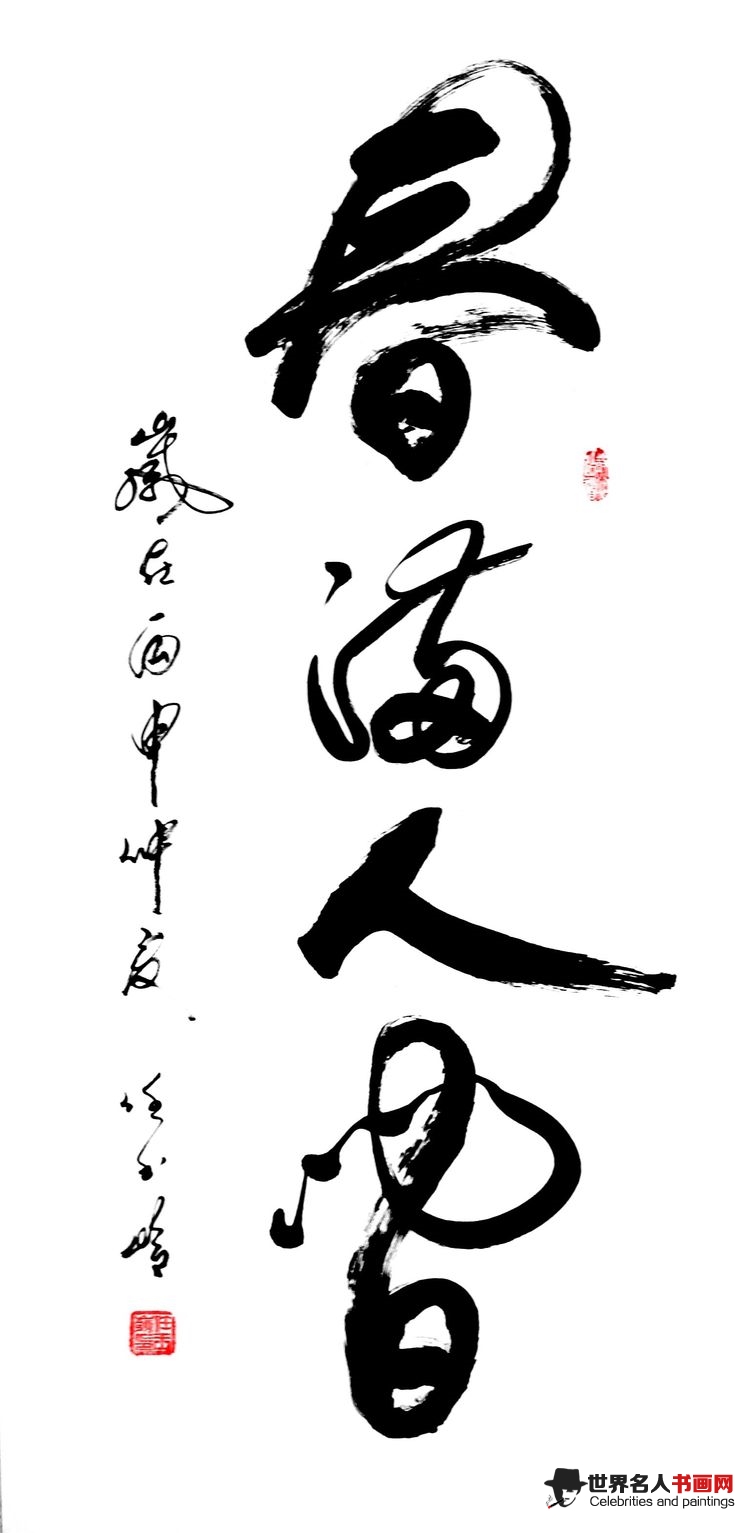 春满人间
岁在丙申仲夏
任玉岭
世界名人书画网
Celebrities and paintings